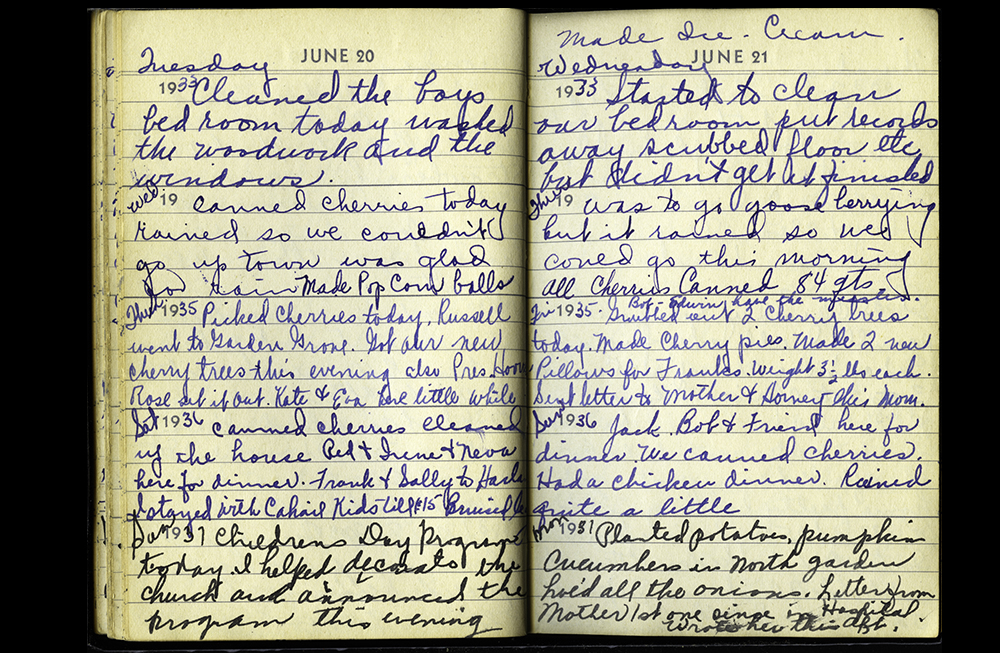 JUNE 20
Tuesday
1933 Cleaned the boys
bed room today washed
the woodwork and the
windows.
Wed 19 canned cherries today
rained so we couldn't
go up town was glad
for rain Made Pop Corn balls
Thur 1935 Picked Cherries today. Russell
went to Garden Grove. Got our new
cherry trees this evening also Pres. Hoover
Rose set it out. Kate & Eva here little while
Sat 1936 canned cherries cleaned
up the house Red & Irene & Neva
here for dinner. Frank & Sally to
I stayed with Cahail Kids till 8:15 Bruised
Sun 1937 Childrens Day Program
today. I helped decorate the
church and announced the
program this evening
Made Ice-Cream.
JUNE 21
Wednesday
1933 Started to clean
our bed room put records
away scrubbed floor etc
but didn't get it finished
Thur 19 was to go goose berrying
but it rained so we
coued go this morning
All Cherries Canned 84 qts.
Bob & Edwin have the measles.
Fri 1935. Grubbed out 2 Cherry trees
today. Made Cherry pies. Made 2 new
Pillows for Franks. Weight 3 1/2 lbs each.
Sent letter to Mother & Mom.
Sun 1936 Jack. Bob & Friend here for
dinner. We canned cherries.
Had a chicken dinner. Rained
quite a little
Mon 1937 Planted potatoes, pumpkin
Cucumbers in North garden
hoe'd all the onions. Letter from
Mother 1st one since in Hospital.
Wrote her this aft.